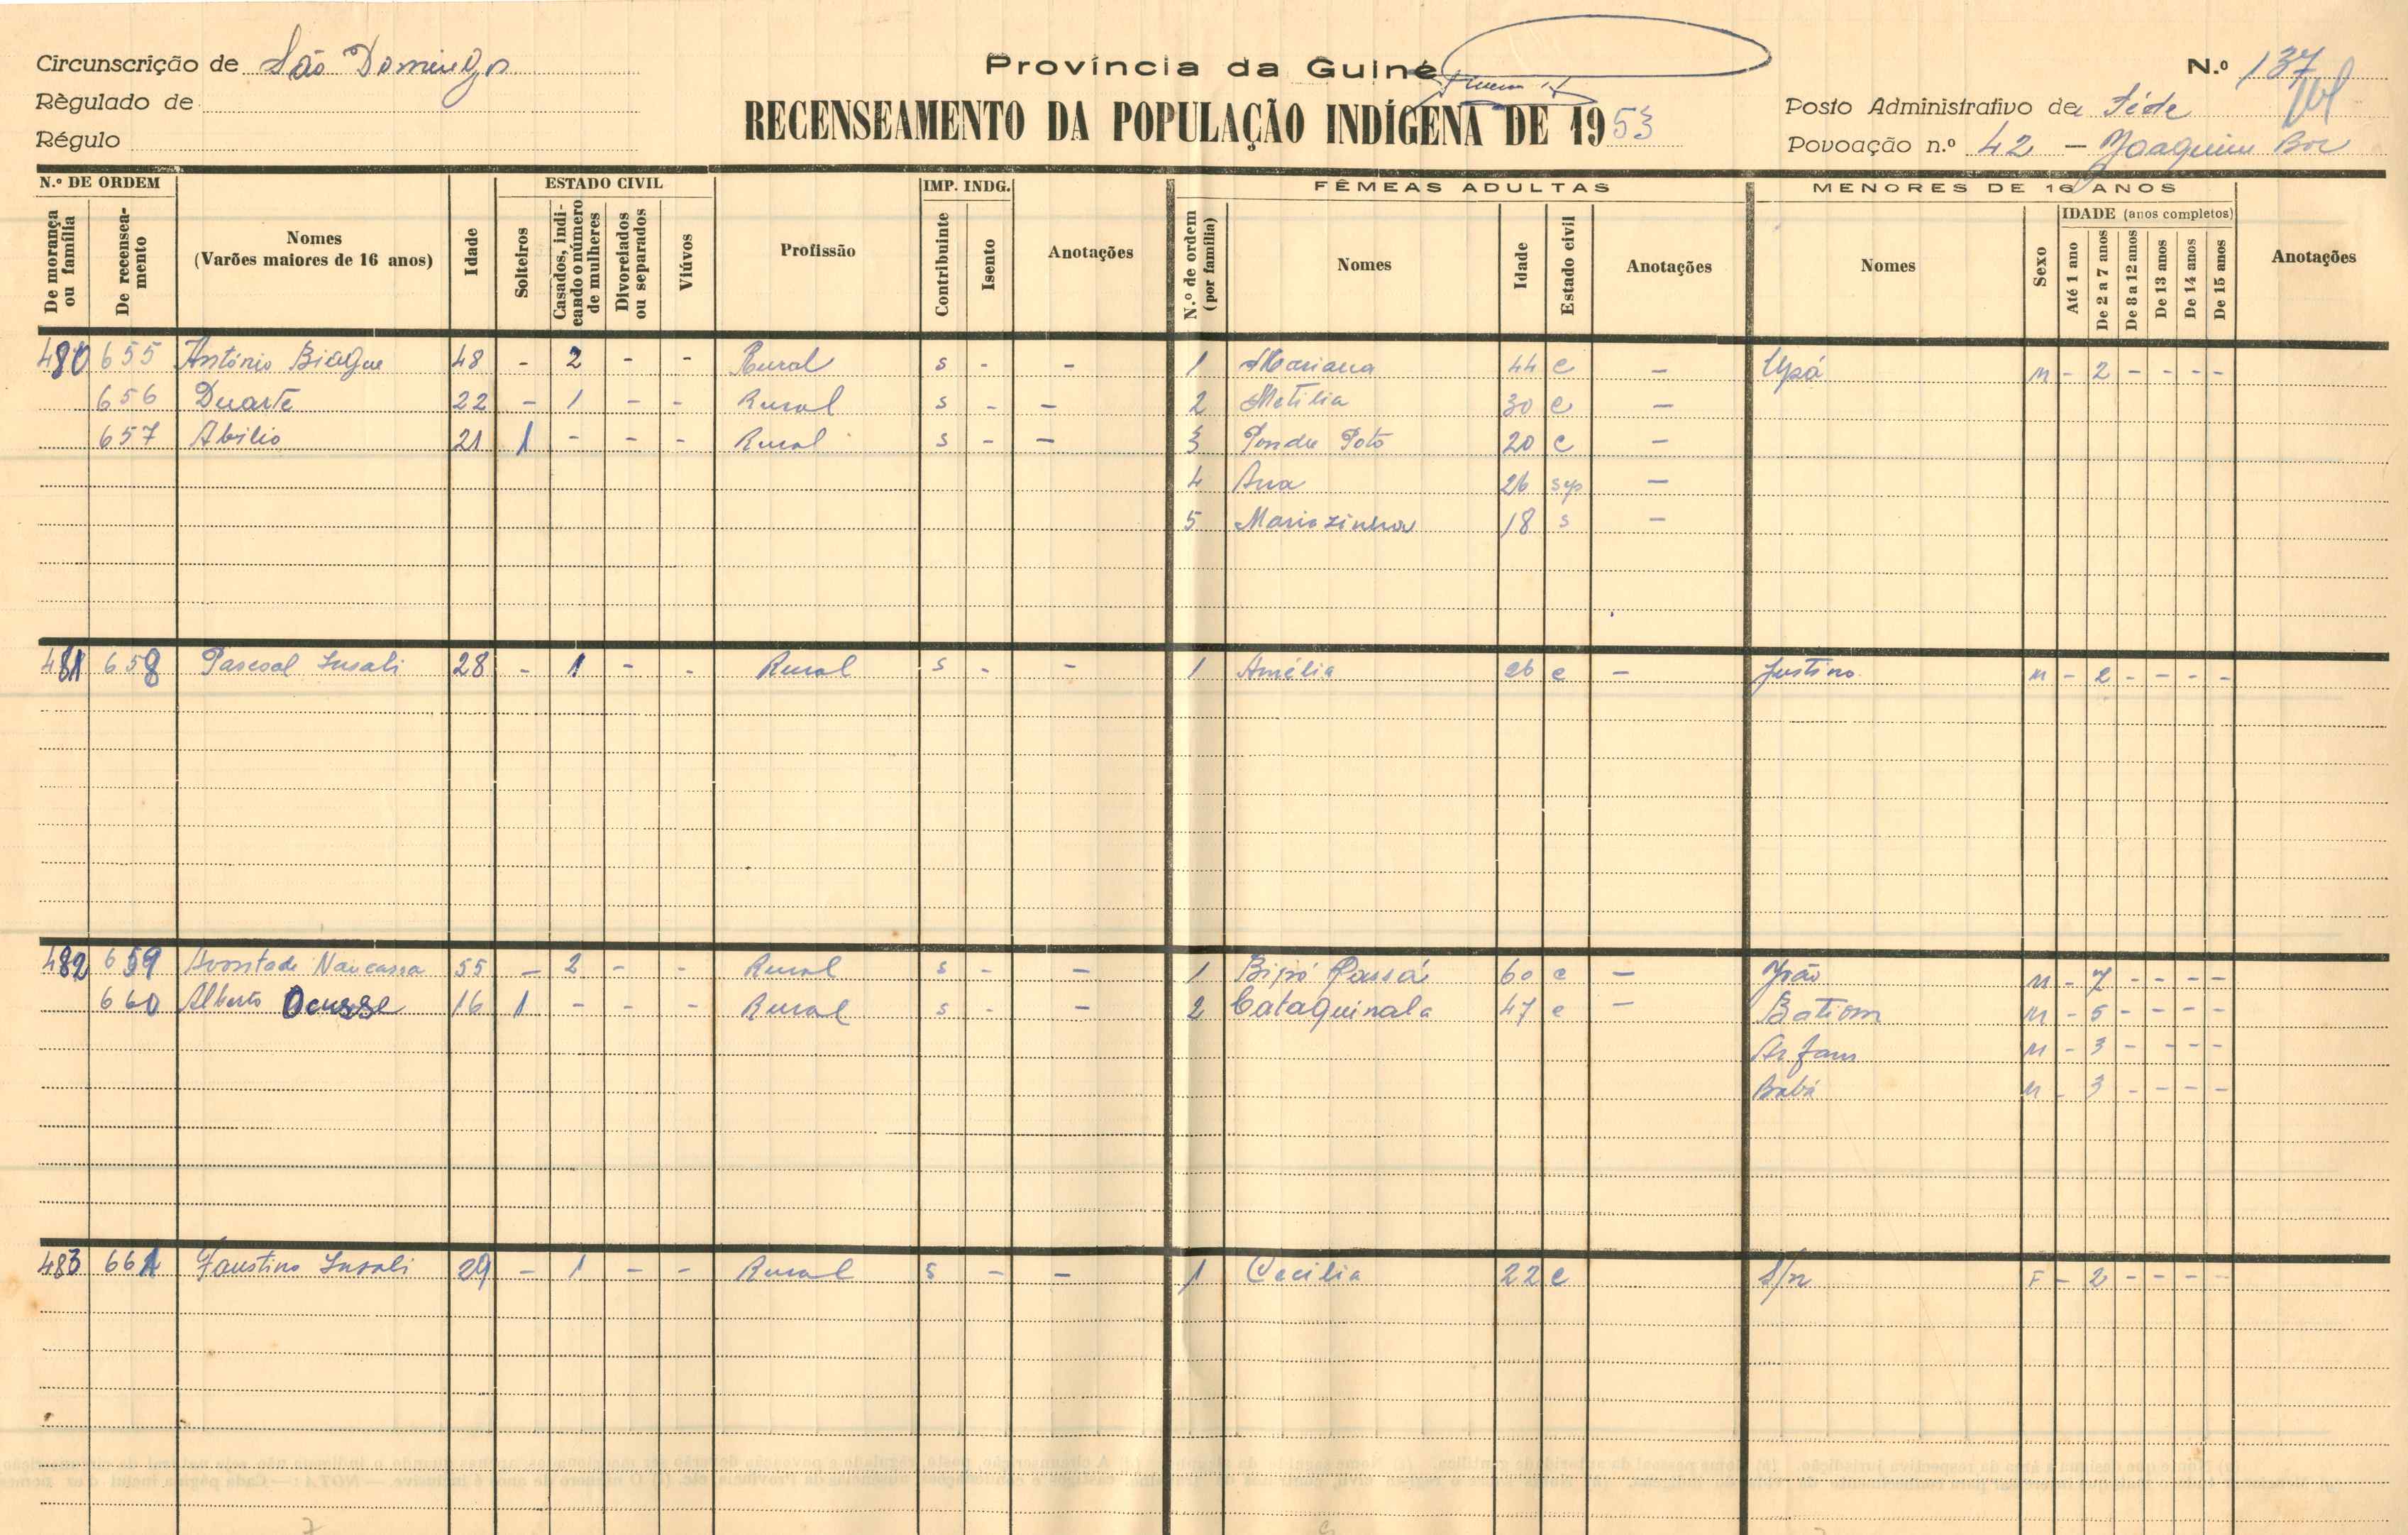 Circunscrição de São Domingos
Règulado de
Régulo
Província da Guiné
RECENSEAMENTO DA POPULAÇÃO INDÍGENA DE 1953
N.º 137
Posto Administrativo de Séde
Povoação n.º 42 - Joaquim Boc
N.º DE ORDEM
De morança ou família
De recensea-mento
Nomes
(Varões maiores de 16 anos)
Idade
ESTADO CIVIL
Solteiros
Casados, indi-cando o número de mulheres
Divorciados ou separados
Viúvos
Profissão
IMP. INDG.
Contribuinte
Isento
Anotações
FÊMEAS ADULTAS
N.º de ordem (por família)
Nomes
Idade
Estado civil
Anotações
MENORES DE 16 ANOS
Nomes
Sexo
IDADE (anos completos)
Até 1 ano
De 2 a 7 anos
De 8 a 12 anos
De 13 anos
De 14 anos
De 15 anos
Anotações
480 655 António Biague 48 - 2 - - Rural s - - 1 Mariana 44 c - Upá M - 2 - - - -
656 Duarte 22 - 1 - - Rural s - - 2 Metilia 30 c -
657 Abilio 21 1 - - - Rural s - - 3 Poto 20 c -
4 Ana 26 sep -
5 Mariazinha 18 s -
481 658 Pascoal Insali 28 - 1 - - Rural s - - 1 Amélia 26 c - Justino M - 2 - - - -
482 659 Nancassa 55 - 2 - - Rural s - - 1 Bipó Passá 60 c - João M - 7 - - - -
660 Alberto 16 1 - - - Rural s - - 2 Cataquinala 47 c - Batiom M - 5 - - - -
M - 3 - - - -
Babá M - 3 - - - -
483 661 Faustino Insali 29 - 1 - - Rural s - - 1 Cecilia 22 c S/n F - 2 - - - -